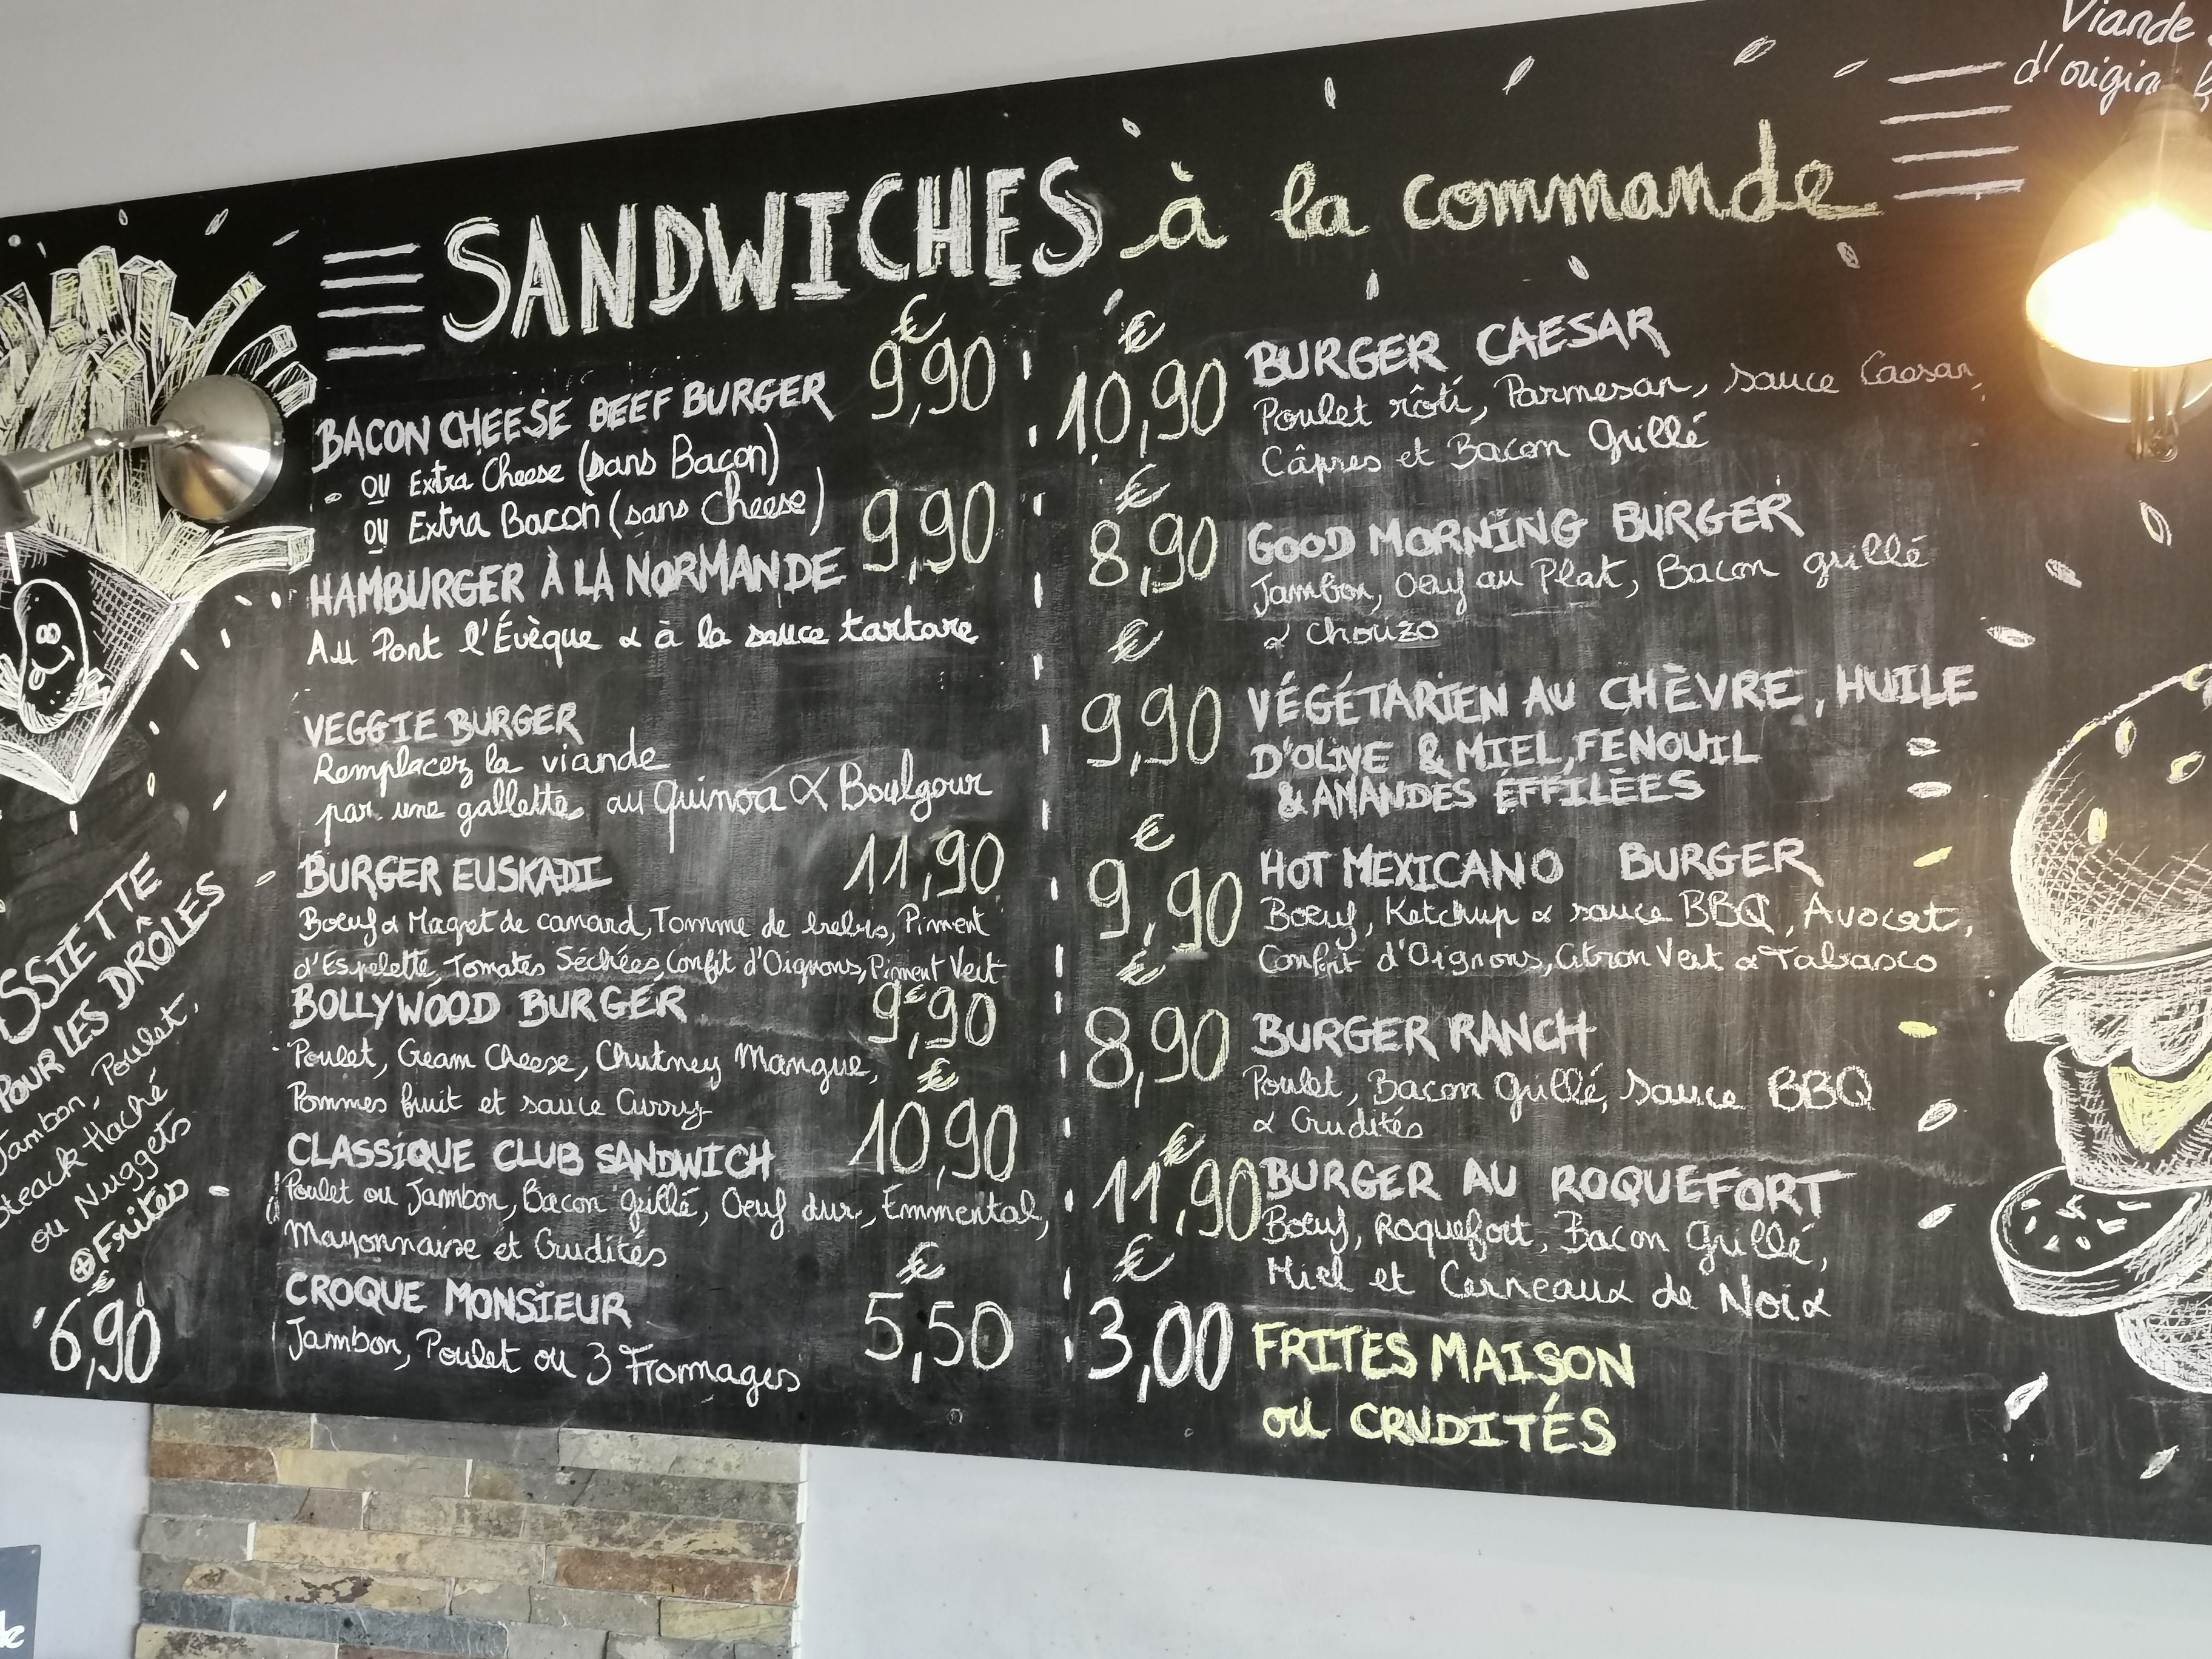 SANDWICHES à la commande
€
9,90
BACON CHEESE BEEF BURGER
ou Extra Cheese (sans Bacon)
ou Extra Bacon (sans cheese)
9,90
HAMBURGER À LA NORMANDE
Au Pont l'Évèque & à la sauce tartare
VEGGIE BURGER
Remplacez la viande
par une gallette au Quinoa & Boulgour
BURGER EUSKADI 11,90
Boeuf & Magret de canard, Tomme de brebis, Piment
d'Espelette, Tomates Séchées, Confit d'Oignons, Piment Vert
€
BOLLYWOOD BURGER 9,90
Poulet, Cream Cheese, Chutney Mangue,
Pommes fruit et sauce Curry
€
CLASSIQUE CLUB SANDWICH 10,90
Poulet ou Jambon, Bacon grillé, Oeuf dur, Emmental,
Mayonnaise et Crudités
€
CROQUE MONSIEUR 5,50
Jambon, Poulet ou 3 Fromages
€
10,90 BURGER CAESAR
Poulet rôti, Parmesan, sauce Caesar,
Câpres et Bacon Grillé
€
8,90 GOOD MORNING BURGER
Jambon, Oeuf au Plat, Bacon grillé
& Chorizo
€
9,90 VÉGÉTARIEN AU CHÈVRE, HUILE
D'OLIVE & MIEL, FENOUIL
& AMANDES ÉFFILÉES
€
9,90 HOT MEXICANO BURGER
Boeuf, Ketchup & sauce BBQ, Avocat,
Confit d'Oignons, Citron Vert & Tabasco
€
8,90 BURGER RANCH
Poulet, Bacon Grillé, Sauce BBQ
& Crudités
€
11,90 BURGER AU ROQUEFORT
Boeuf, Roquefort, Bacon Grillé,
Miel et Cerneaux de Noix
€
3,00 FRITES MAISON
ou CRUDITÉS
SSIETTE
POUR LES DRÔLES
Jambon, Poulet,
Steack Haché
ou Nuggets
⊕ Frites
€
6,90
Viande
d'origin